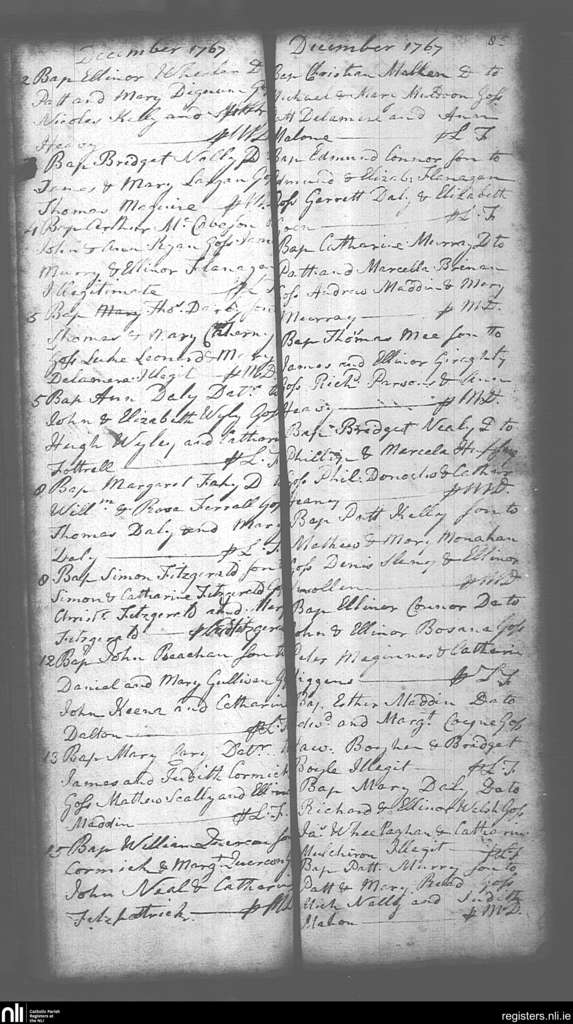 December 1767
2 Bap Ellinor Whelan D
Patt and Mary Digenan G
Nicolas Kelly and
Heavy — p MD
Bap Bridget Nally D
James & Mary Layan Goss
Thomas Maguire — p
4 Bap Arthur Mc
John & Ann Ryan Goss
Murry & Ellinor Flanagan
Illegitimate — p L F
5 Bap Mary Thos. Darby son
Thomas & Mary
Goss Luke Leonard & Mary
Delamere Illegit — p MD
5 Bap Ann Daly Datr. to
John & Elizabeth Wyly Goss
Hugh Wyley and Catharn
Fottrell — p L: F
8 Bap Margaret Fahy D
Willm. & Rose Ferrall Goss
Thomas Daly and Mary
Daly — p L F
8 Bap Simon Fitzgerald son
Simon & Catharine Fitzgerald G
Christr. Fitzgerald and Mary
Fitzgerald — p
12 Bap John Beachan son to
Daniel and Mary Gullivan G
John Keena and Catharin
Dalton — p L: F
13 Bap Mary Datr.
James and Judith Cormick
Goss Mathew Scally and Ellinor
Maddin — p L: F.
15 Bap William son
Cormick & Margt.
John Neal & Catharin
Fitzpatrick — p MD
December 1767 85
Bap Christian Malken D to
Michael & Mary Muldoon Goss
Patt Delamere and Ann
Malone — p L F
Bap Edmund Connor son to
Edmund & Elizab: Flanagan
Goss Garrett Daly & Elizabeth
— p L. F
Bap Catharine Murray D to
Patt and Marcella Brenan
Goss Andrew Maddin & Mary
Murray — p MD.
Bap Thomas Mee son to
James and Ellinor Giraghty
Goss Richd. Parsons & Ann
Heavy — p MD.
Bap Bridget Nealy D to
Phillip & Marcela
Goss Phil: Donochoe & Cathar
— p MD.
Bap Patt Kelly son to
Mathew & Mary Monahan
Goss Denis Slevy & Ellinor
— p MD
Bap Ellinor Connor Da to
John & Ellinor Bosana Goss
Peter Maginnes & Catharin
Higgens — p L F
Bap Esther Maddin Da to
Edwd. and Margt. Coyne Goss
Law. Borghen & Bridget
Boyle Illegit — p L: F.
Bap Mary Daly Da to
Richard & Ellinor Welsh Goss
Ja: Whee & Catharin
Illegit — p L F
Bap Patt Murry son to
Patt & Mary Read goss
Mich Nally and Judith
Mahon — p MD.
nli
Catholic Parish
Registers at
the NLI
registers.nli.ie